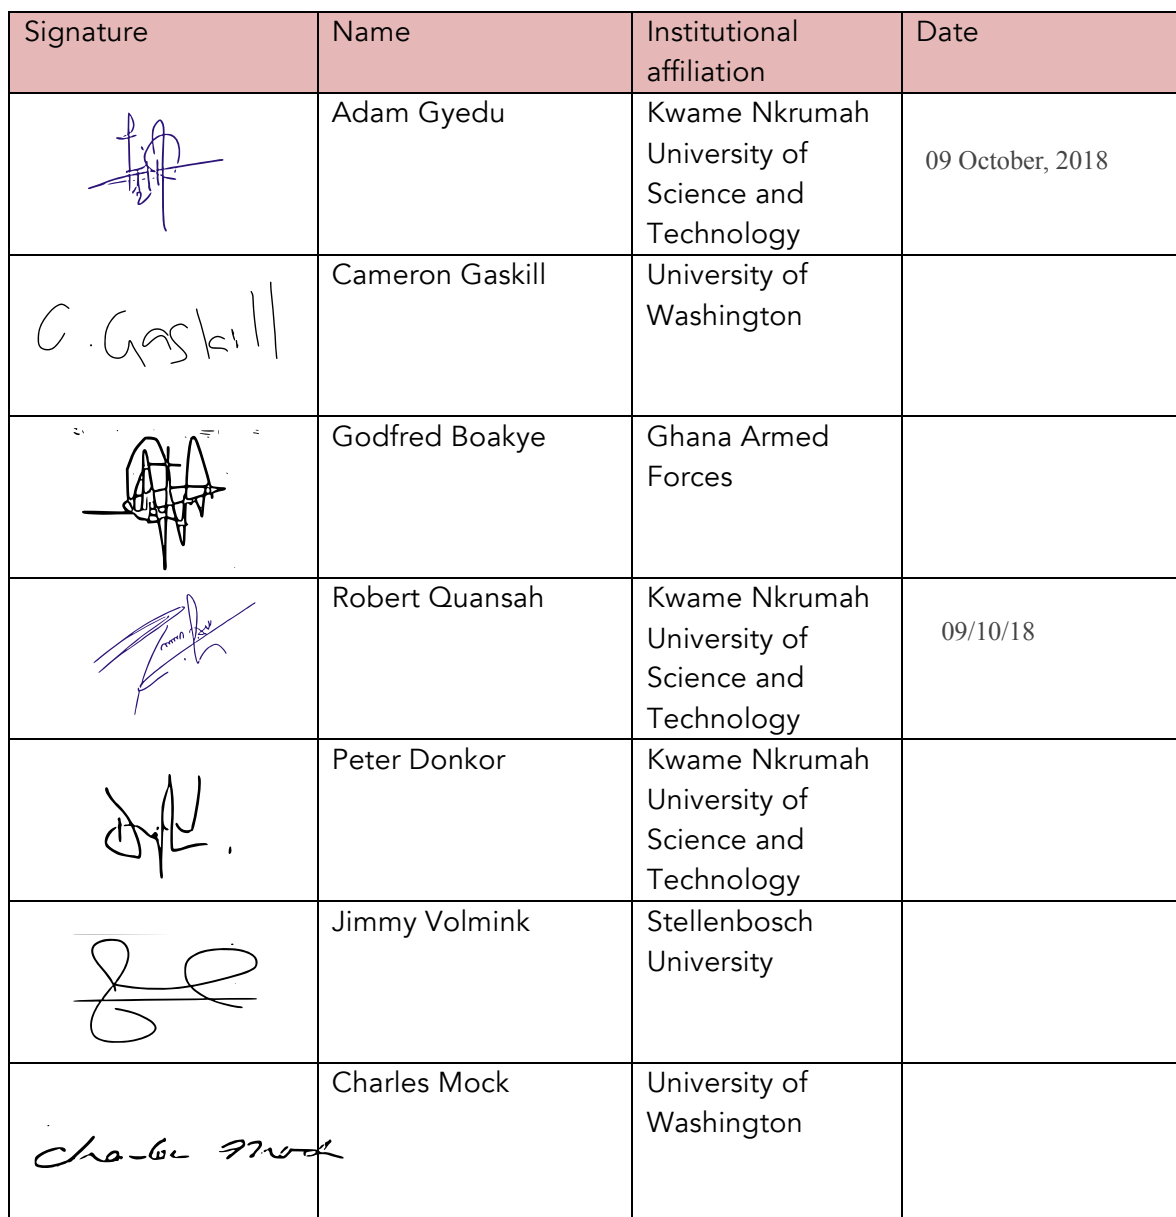 Signature Name Institutional Date
affiliation
Adam Gyedu Kwame Nkrumah
University of
Science and
Technology
09 October, 2018
C. Gaskill
Cameron Gaskill University of
Washington
Godfred Boakye Ghana Armed
Forces
Robert Quansah Kwame Nkrumah
University of
Science and
Technology
09/10/18
Peter Donkor Kwame Nkrumah
University of
Science and
Technology
Jimmy Volmink Stellenbosch
University
Charles Mock University of
Washington
Charles Mock